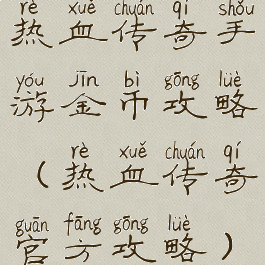 rè xuě chuán qí shǒu
热血传奇手
yóu jīn bì gōng lüè
游金币攻略
rè xuě chuán qí
（热血传奇
guān fāng gōng lüè
官方攻略）